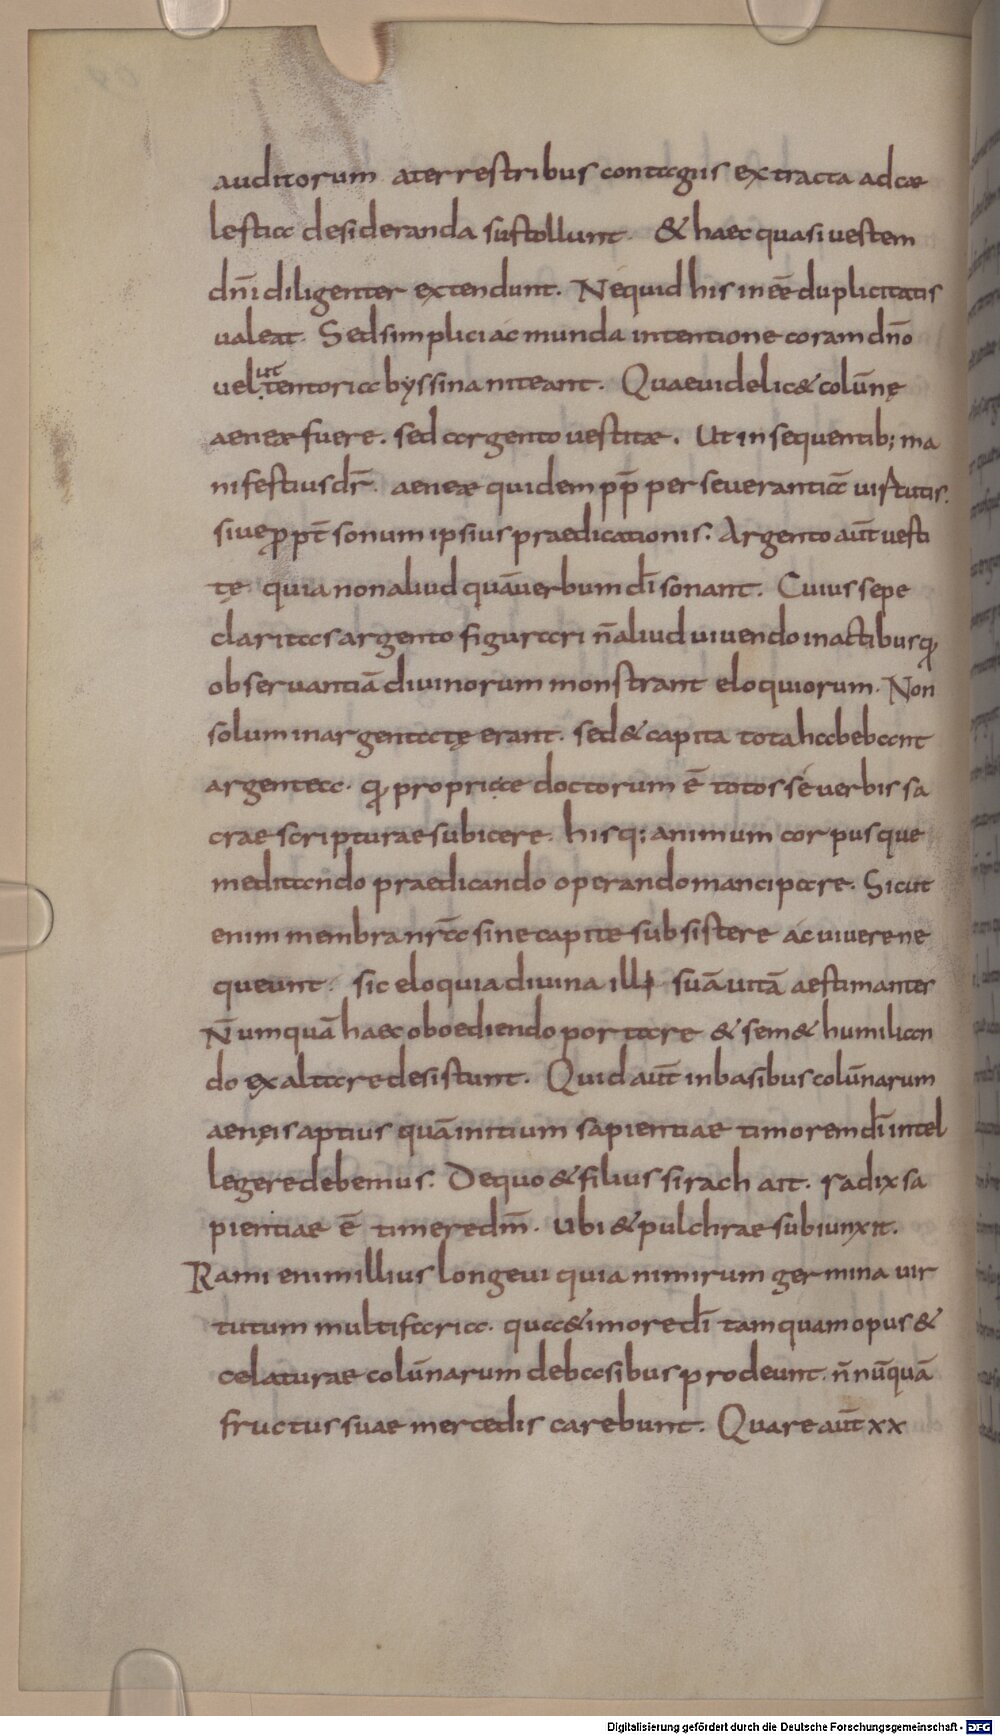 auditorum aterrestribus contagiis extracta adcae
lestia desideranda sustollunt. & haec quasi uestem
dn̄i diligenter extendunt. Nequid his inee̅ duplicitatis
ualeat. Sed simplici ac munda intentione coram dn̄o
uelut tentoria byssina niteant. Quae uidelic& colūnę
aeneae fuere. sed argento uestitae. Ut in sequentib; ma
nifestius dr̄. aeneae quidem pp̄ perseuerantiā uirtutis.
siue ꝓpt̄ sonum ipsius praedicationis. Argento aūt uesti
tę quia non aliud quā uerbum dī sonant. Cuius sepe
claritas argento figurari n̄ aliud uiuendo in actibus qꝫ
obseruantiā diuinorum monstrant eloquiorum. Non
solum inargentatę erant. sed & capita tota habebant
argentea. qꝫ propriae doctorum ē totos sé uerbis sa
crae scripturae subicere. hisq; animum corpusque
meditando praedicando operando mancipare. Sicut
enim membra nr̄a sine capite subsistere ac uiuere ne
queunt. sic eloquia diuina illꝝ suā uitā aestimanter
N̄umquā haec oboediendo portare & sem& humilian
do exaltare desistunt. Quid aūt in basibus colūnarum
aenęis aptius quā initium sapientiae timorem dī intel
legere debemus. De quo & filius sirach ait. radix sa
pientiae ē timere dn̄m. ubi & pulchrae subiunxit.
Rami enim illius longeui quia nimirum germina uir
tutum multifaria. qua& imore dī tamquam opus &
celaturae colūnarum debasibus prodeunt. n̄ nūquā
fructus suae mercedis carebunt. Quare aūt xx
Digitalisierung gefördert durch die Deutsche Forschungsgemeinschaft - DFG